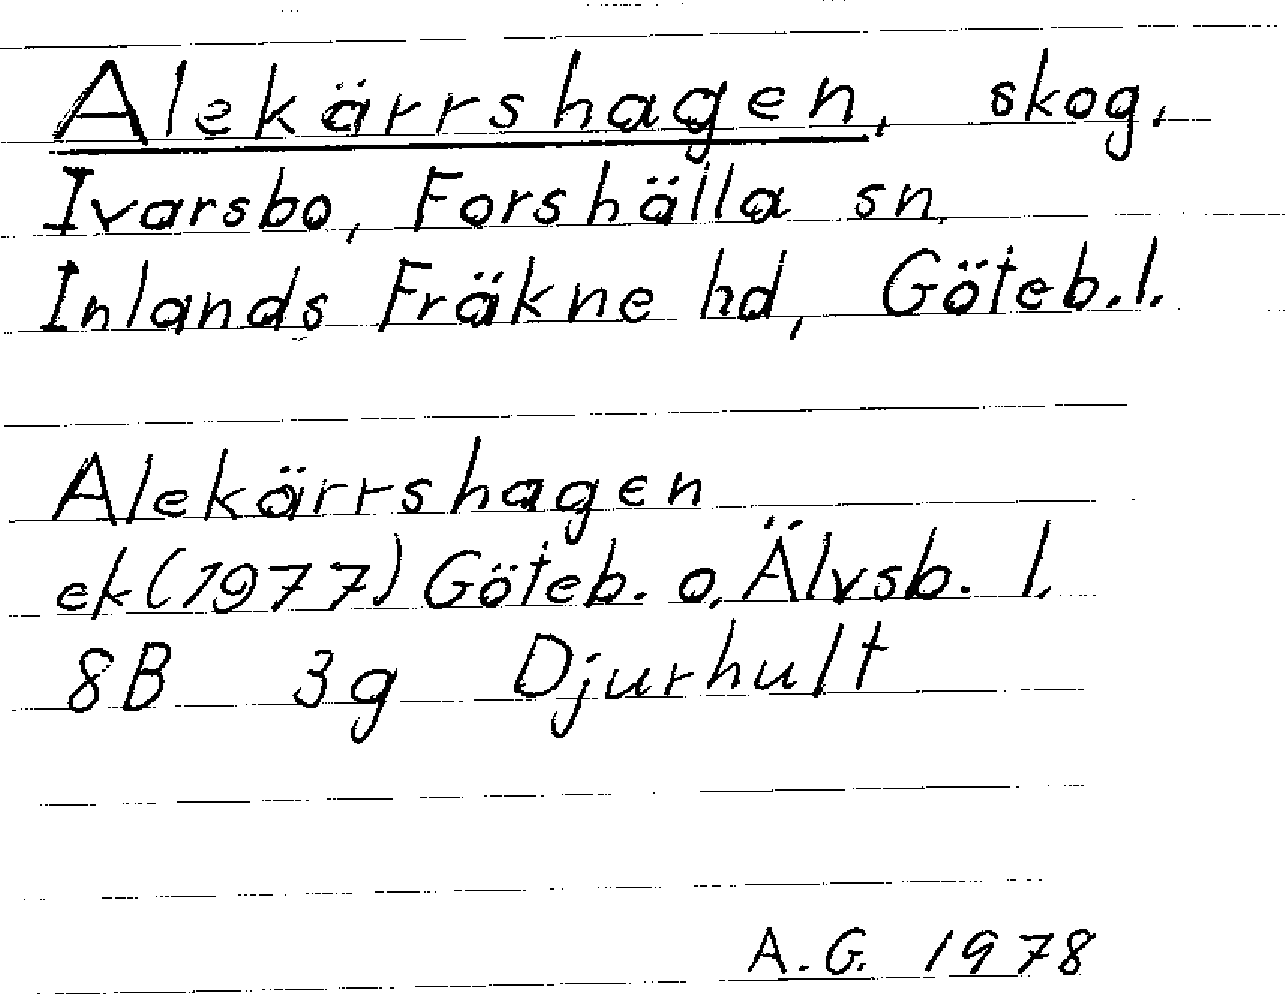 Alekärrshagen, skog,
Ivarsbo, Forshälla sn.
Inlands Fräkne hd, Göteb.l.
Alekärrshagen
ek(1977) Göteb. o. Älvsb. l.
8B 3g Djurhult
A.G. 1978